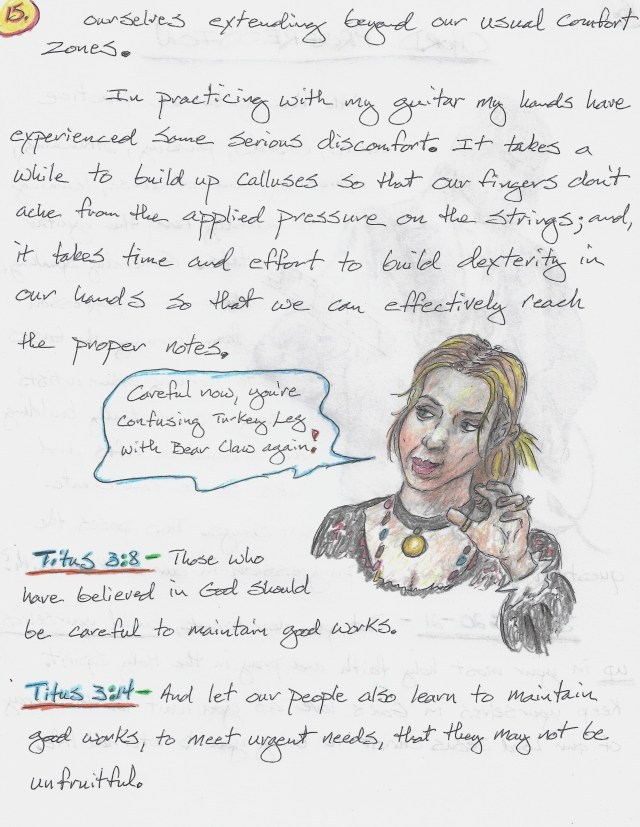 15. ourselves extending beyond our usual comfort
zones.
In practicing with my guitar my hands have
experienced some serious discomfort. It takes a
while to build up calluses so that our fingers don't
ache from the applied pressure on the strings; and,
it takes time and effort to build dexterity in
our hands so that we can effectively reach
the proper notes.
Careful now, you're
confusing Turkey Leg
with Bear Claw again!
Titus 3:8 - Those who
have believed in God should
be careful to maintain good works.
Titus 3:14 - And let our people also learn to maintain
good works, to meet urgent needs, that they may not be
unfruitful.